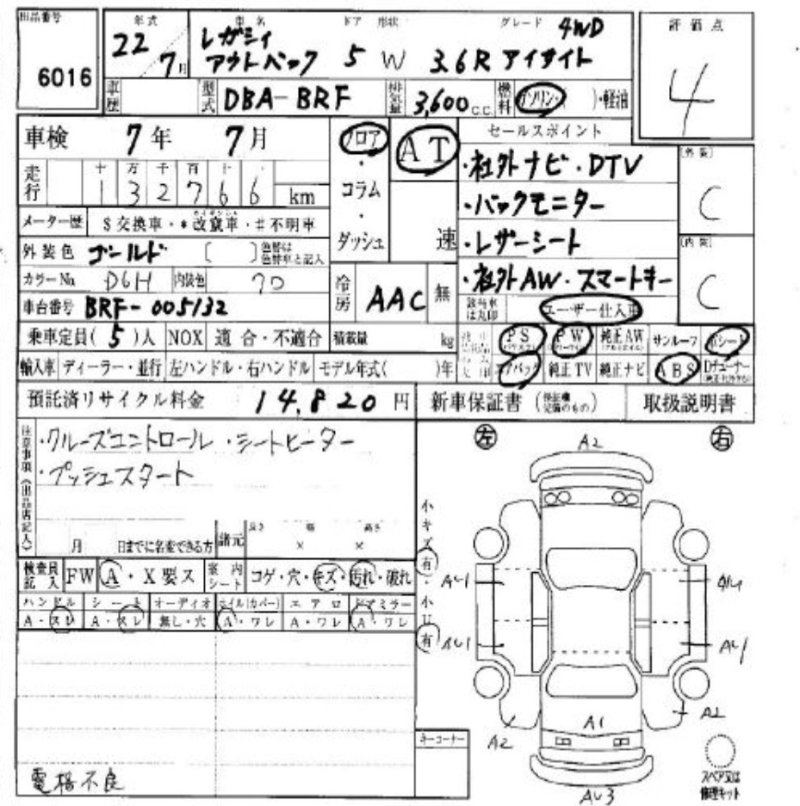 出品番号 6016
年式 22/7月
車名 レガシィ アウトバック
ドア 形状 5 W
グレード 4WD
3.6R アイサイト
評価点 4
車歴
型式 DBA-BRF
排気量 3,600 c.c.
燃料 ガソリン・( )・軽油
車検 7年 7月
フロア・コラム・ダッシュ
AT 速
セールスポイント
・社外ナビ・DTV
・バックモニター
・レザーシート
・社外AW・スマートキー
[外装] C
[内装] C
走行 十 万 千 百
1 3 2 7 6 6 km
メーター歴 $交換車・*改竄車・#不明車
外装色 ゴールド [ ] 色替は色替車と記入
カラーNo. D6H 内装色 70
冷房 AAC 無
車台番号 BRF-005132
該当車は丸印 ユーザー仕入車
乗車定員(5)人 NOX 適合・不適合 積載量 kg
PS PW 純正AW サンルーフ 革シート
輸入車 ディーラー・並行 左ハンドル・右ハンドル モデル年式( )年
エアバック 純正TV 純正ナビ ABS Dチューナー
預託済リサイクル料金 14,820円 新車保証書 (保証継続可能のもの) 取扱説明書
注意事項《出品店記入》
・クルーズコントロール ・シートヒーター
・プッシュスタート
月 日までに名変できる方 諸元 長さ 幅 高さ × ×
検査員記入 FW A・X要ス 室内シート コゲ・穴・キズ・汚れ・破れ
ハンドル シート オーディオ ホイル(カバー) エアロ ドアミラー
A・スレ A・スレ 無し・穴 A・ワレ A・ワレ A・ワレ
小キズ 有・小凹 有
左 右
A2
AU1
AU1
A2
A1
AU1
A2
AU3
キーコーナー
スペア又は修理キット
電格不良